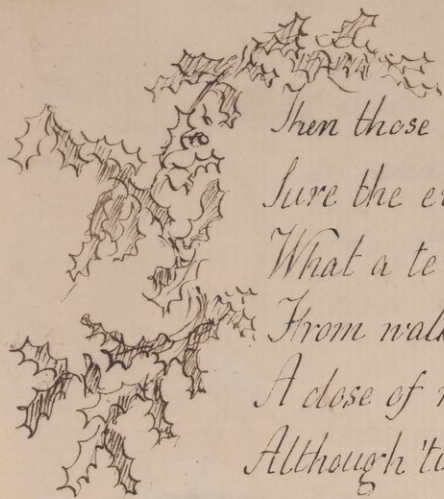 Then those
Sure the e
What a te
From walk
A dose of
Although 'ti